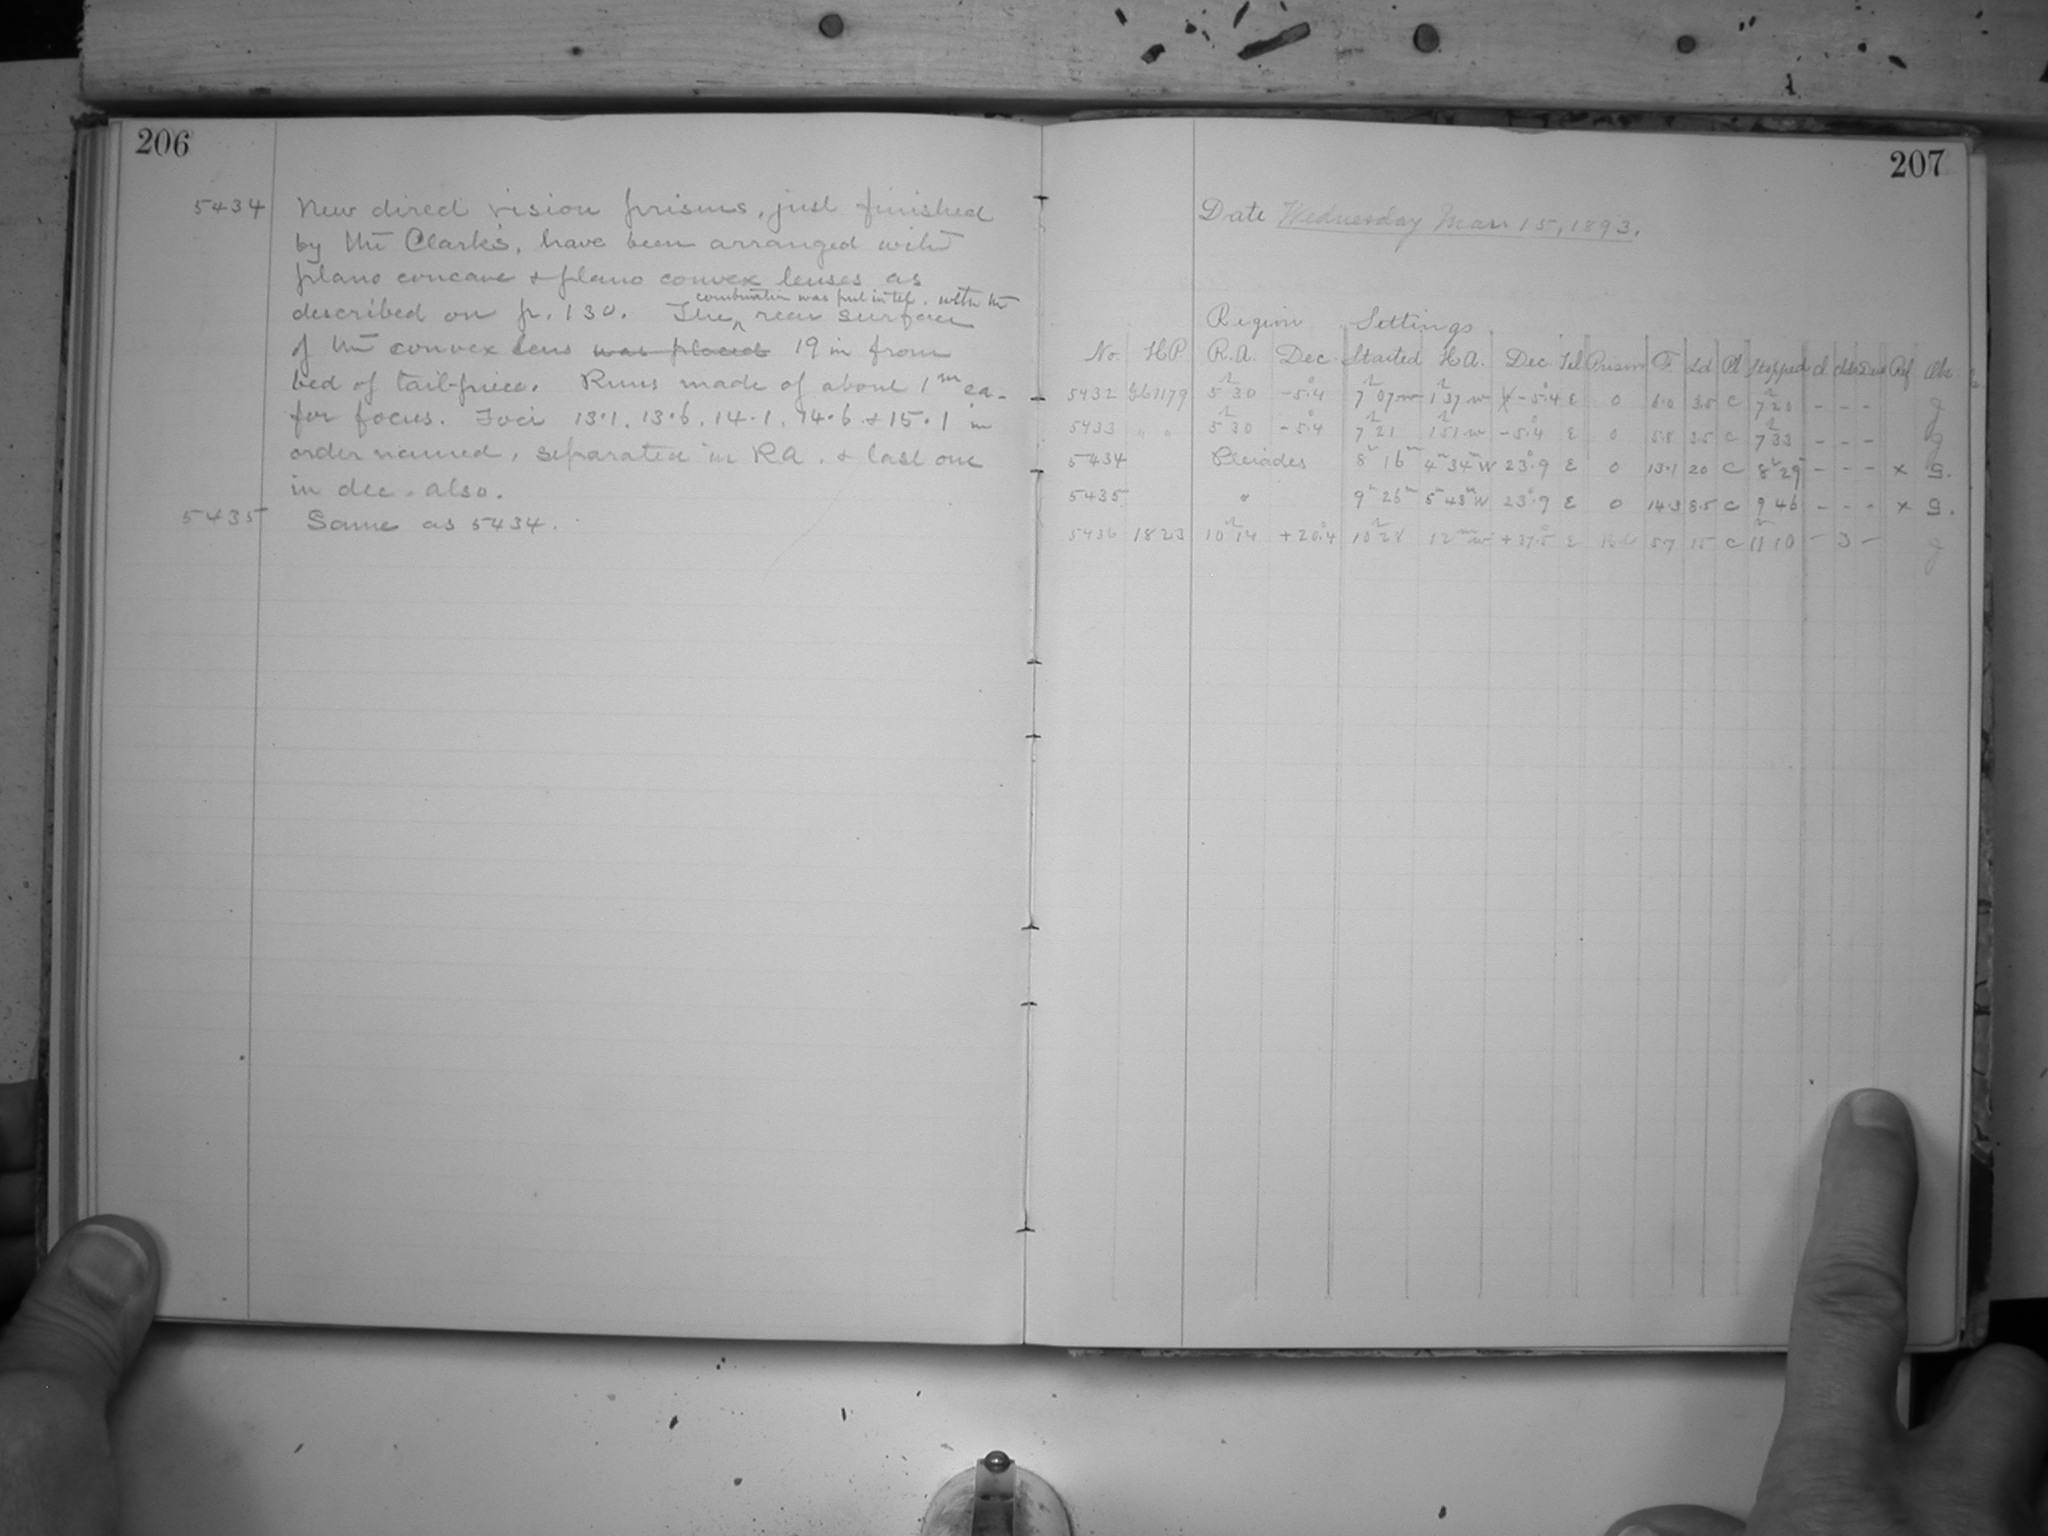 206
5434 New direct vision prisms, just finished
by the Clarks, have been arranged with
plano concave & plano convex lenses as
combination was put in tel. with the
described on p. 130. The rear surface
of the convex lens was placed 19 in from
bed of tail-piece. Runs made of about 1m ea.
for focus. Foci 13.1, 13.6, 14.1, 14.6 & 15.1 in
order named, separated in RA. & last one
in dec. also.
5435 Same as 5434.
207
Date Wednesday Mar. 15, 1893.
Region Settings
No. H.P. R.A. Dec. Started H.A. Dec. Tel Prism F. Sd Pl Stopped cl Ref Obs.
5432 1179 5h 30 -5°.4 7h 07m 1h 37m w -5°.4 E 0 6.0 35 C 7h 20 - - - g
5433 " " 5h 30 -5°.4 7h 21 1h 51 w -5°.4 E 0 5.8 35 C 7h 33 - - - g
5434 Pleiades 8h 16m 4h 34m W 23°.9 E 0 13.1 20 C 8h 29 - - - x S.
5435 " 9h 26m 5h 43m W 23°.9 E 0 14.3 8.5 C 9 46 - - - x S.
5436 1823 10h 14 +20°.4 10h 28 12m w +37°.5 E 5.7 15 C 11h 10 - 3 - g